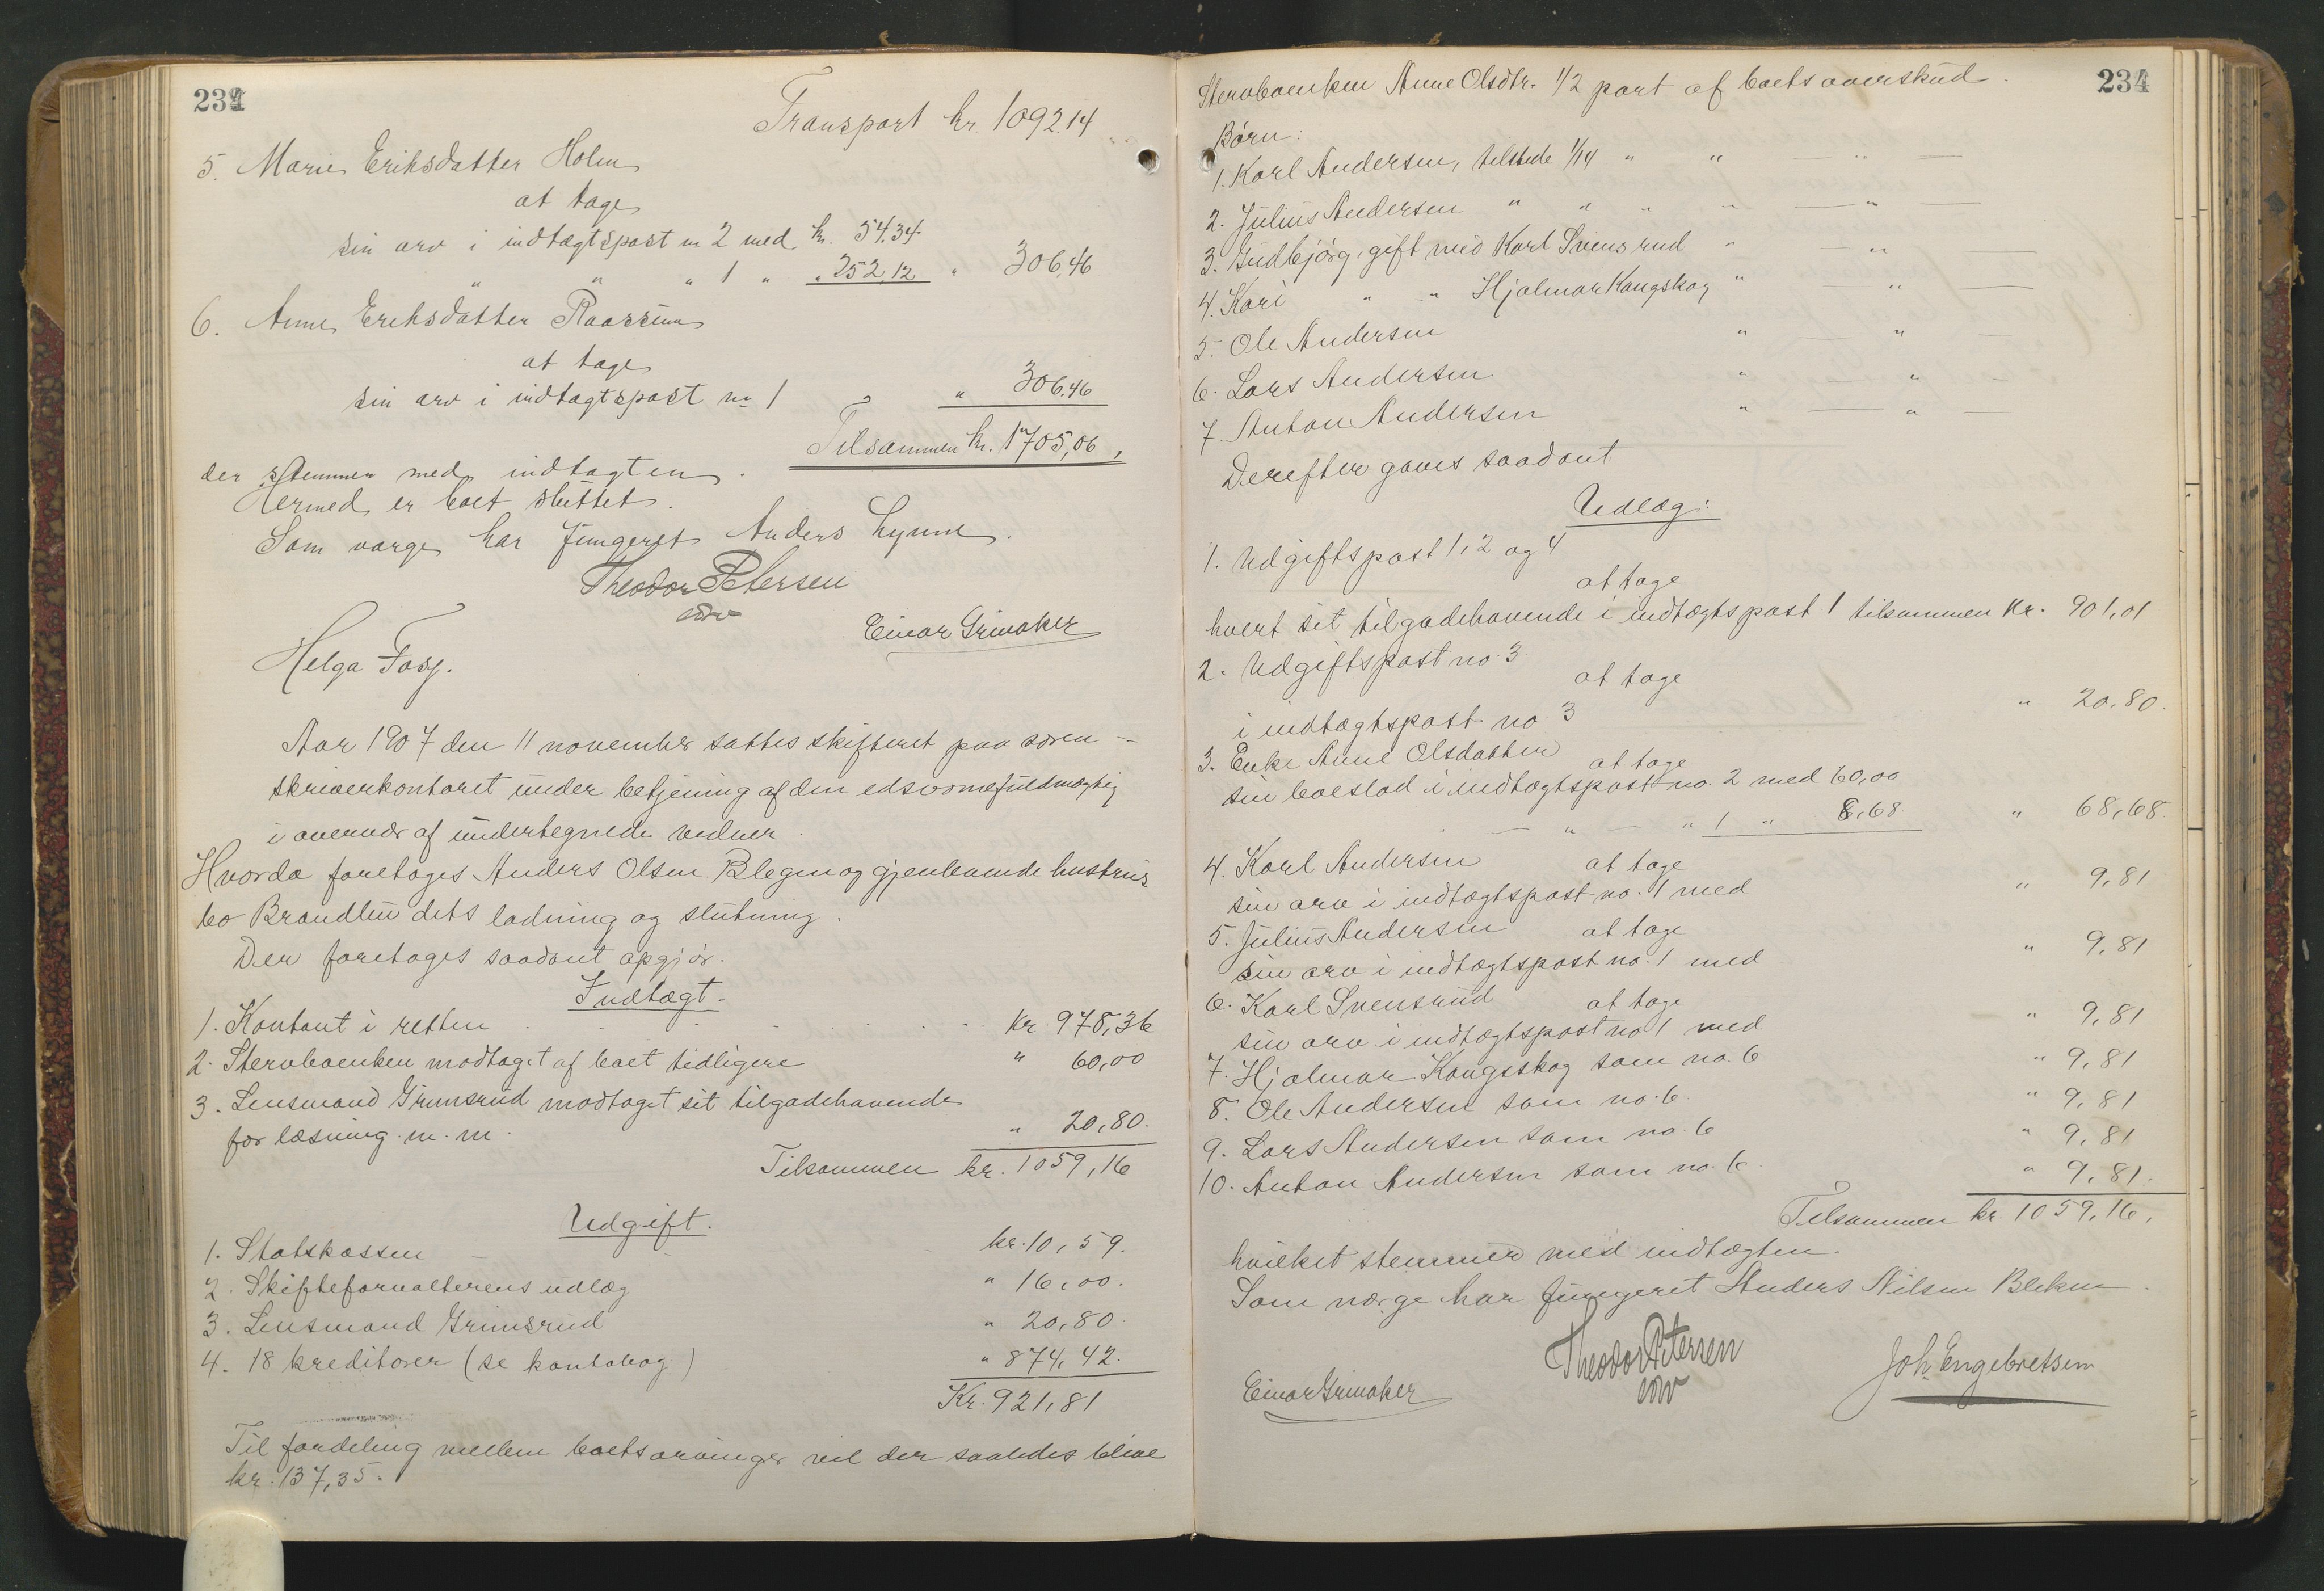 234
Transport kr. 1092.14
5. Marie Eriksdatter Holm
at tage
sin arv i indtægtspost nr 2 med kr. 54.34
" " " 1 " " 252,12 " 306,46
6. Anne Eriksdatter Raassum
at tage
sin arv i indtægtspost no 1 " 306.46
Tilsammen kr. 1705,06,
der stemmer med indtægten.
Hermed er boet sluttet.
Som værge har fungeret Anders Lynne.
Theodor Petersen
edsv
Einar Grinaker
Helga Fosj.
Aar 1907 den 11 november sattes skifteret paa soren-
skriverkontoret under betjening af den edsvornefuldmægtig
i overvær af undertegnede vidner.
Hvorda foretoges Anders Olsen Blegen og gjenlevende hustrus
bo Brandbu dets ladning og slutning.
Der foretoges saadant opgjør.
Indtægt.
1. Kontant i retten kr. 978,36
2. Stervboenken modtaget af boet tidligere " 60,00
3. Lensmand Grimsrud modtaget sit tilgodehavende
for læsning m. m. " 20,80.
Tilsammen kr. 1059,16
Udgift.
1. Statskassen kr. 10,59.
2. Skifteforvalterens udlæg " 16,00.
3. Lensmand Grimsrud " 20,80.
4. 18 kreditorer (se kontobog) " 874,42.
Kr. 921,81
Til fordeling mellem boets arvinger vil der saaledes blive
kr. 137,35.
234
Stervboenken Anne Olsdtr. 1/2 part af boets overskud.
Børn:
1. Karl Andersen, tilstede 1/14 " " — " —
2. Julius Andersen " " " " — " —
3. Gudbjørg, gift med Karl Svensrud " — " —
4. Kari " " Hjalmar Kangskog " — " —
5. Ole Andersen " — " —
6. Lars Andersen " — " —
7 Anton Andersen " — " —
Derefter gaves saadant
Udlæg:
1. Udgiftspost 1, 2 og 4
at tage
hvert sit tilgodehavende i indtægtspost 1 tilsammen kr. 901,01
2. Udgiftspost no. 3
at tage
i indtægtspost no 3 " 20,80.
3. Enke Anne Olsdatter at tage
sin boeslod i indtægtspost no. 2 med 60,00
— " — " 1 " 8,68 " 68,68
4. Karl Andersen at tage
sin arv i indtægtspost no. 1 med " 9,81
5. Julius Andersen at tage
sin arv i indtægtspost no. 1 med " 9,81
6. Karl Svensrud at tage
sin arv i indtægtspost no 1 med " 9,81
7. Hjalmar Kangskog som no. 6 " 9,81
8. Ole Andersen som no. 6 " 9,81
9. Lars Andersen som no. 6 " 9,81
10. Anton Andersen som no. 6 " 9,81.
Tilsammen kr. 1059,16,
hvilket stemmer med indtægten.
Som værge har fungeret Anders Nilsen Bleken.
Theodor Petersen
edsv
Joh. Engebretsen
Einar Grinaker